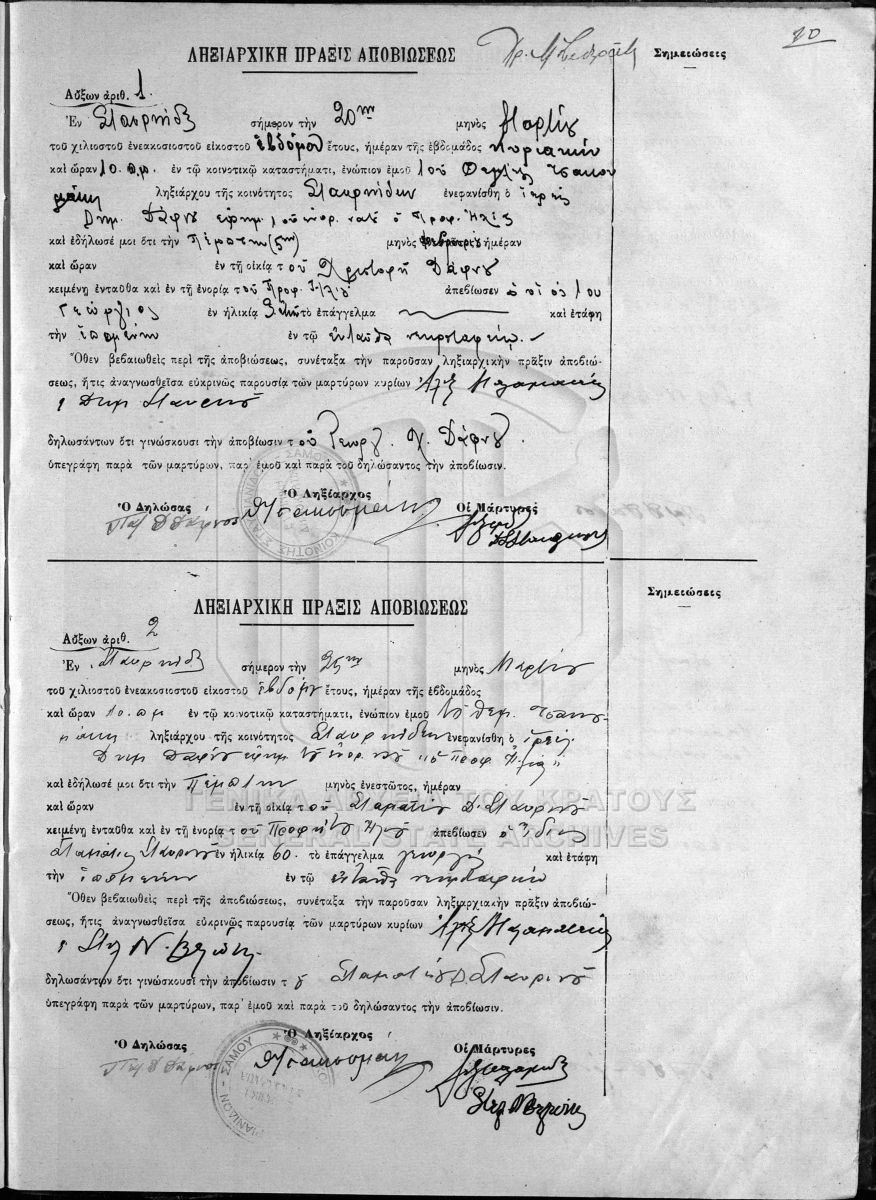 10
ΛΗΞΙΑΡΧΙΚΗ ΠΡΑΞΙΣ ΑΠΟΒΙΩΣΕΩΣ
Σημειώσεις
Αὔξων ἀριθ. 1.
Ἐν σήμερον τὴν 20ην μηνὸς Μαρτίου
τοῦ χιλιοστοῦ ἐνεακοσιοστοῦ εἰκοστοῦ ἑβδόμου ἔτους, ἡμέραν τῆς ἑβδομάδος Κυριακὴν
καὶ ὥραν 10. π.μ. ἐν τῷ κοινοτικῷ καταστήματι, ἐνώπιον ἐμοῦ τοῦ
ληξιάρχου τῆς κοινότητος Σταυρηνίδων ἐνεφανίσθη ὁ ἱερεὺς
Δημ. Δάφνου ἐφημ. Προφ. Ἠλία
καὶ ἐδήλωσέ μοι ὅτι τὴν Πέμπτην (5ην) μηνὸς ἡμέραν
καὶ ὥραν ἐν τῇ οἰκίᾳ τοῦ Χριστοφῆ Δάφνου
κειμένῃ ἐνταῦθα καὶ ἐν τῇ ἐνορίᾳ τοῦ Προφ. Ἠλιού ἀπεβίωσεν ὁ υἱός του
Γεώργιος ἐν ἡλικίᾳ τὸ ἐπάγγελμα καὶ ἐτάφη
τὴν ἑπομένην ἐν τῷ ἐνταῦθα νεκροταφείῳ.
Ὅθεν βεβαιωθεὶς περὶ τῆς ἀποβιώσεως, συνέταξα τὴν παροῦσαν ληξιαρχικὴν πρᾶξιν ἀποβιώ-
σεως, ἥτις ἀναγνωσθεῖσα εὐκρινῶς παρουσίᾳ τῶν μαρτύρων κυρίων Ἀλεξ
Δημ Σταυρινοῦ
δηλωσάντων ὅτι γινώσκουσι τὴν ἀποβίωσιν τοῦ Γεωργ. Χ. Δάφνου.
ὑπεγράφη παρὰ τῶν μαρτύρων, παρ' ἐμοῦ καὶ παρὰ τοῦ δηλώσαντος τὴν ἀποβίωσιν.
Ὁ Δηλώσας Ὁ Ληξίαρχος Οἱ Μάρτυρες
ΛΗΞΙΑΡΧΙΚΗ ΠΡΑΞΙΣ ΑΠΟΒΙΩΣΕΩΣ
Σημειώσεις
Αὔξων ἀριθ. 2
Ἐν σήμερον τὴν 25ην μηνὸς Μαρτίου
τοῦ χιλιοστοῦ ἐνεακοσιοστοῦ εἰκοστοῦ ἑβδόμου ἔτους, ἡμέραν τῆς ἑβδομάδος
καὶ ὥραν 10. π.μ ἐν τῷ κοινοτικῷ καταστήματι, ἐνώπιον ἐμοῦ τοῦ
ληξιάρχου τῆς κοινότητος Σταυρηνίδων ἐνεφανίσθη ὁ ἱερεὺς
Δημ Δάφνου ἐφημ "ὁ Προφ Ἠλίας"
καὶ ἐδήλωσέ μοι ὅτι τὴν Πέμπτην μηνὸς ἐνεστῶτος, ἡμέραν
καὶ ὥραν ἐν τῇ οἰκίᾳ τοῦ Σταματίου Δ. Σταυρινοῦ
κειμένῃ ἐνταῦθα καὶ ἐν τῇ ἐνορίᾳ τοῦ Προφήτου Ἠλιού ἀπεβίωσεν ὁ ἴδιος
Σταμάτιος Σταυρινοῦ ἐν ἡλικίᾳ 60. τὸ ἐπάγγελμα γεωργὸς καὶ ἐτάφη
τὴν ἑπομένην ἐν τῷ ἐνταῦθα νεκροταφείῳ
Ὅθεν βεβαιωθεὶς περὶ τῆς ἀποβιώσεως, συνέταξα τὴν παροῦσαν ληξιαρχιακὴν πρᾶξιν ἀποβιώ-
σεως, ἥτις ἀναγνωσθεῖσα εὐκρινῶς παρουσίᾳ τῶν μαρτύρων κυρίων Ἀλεξ
δηλωσάντων ὅτι γινώσκουσι τὴν ἀποβίωσιν τοῦ Σταματίου Δ. Σταυρινοῦ
ὑπεγράφη παρὰ τῶν μαρτύρων, παρ' ἐμοῦ καὶ παρὰ τοῦ δηλώσαντος τὴν ἀποβίωσιν.
Ὁ Δηλώσας Ὁ Ληξίαρχος Οἱ Μάρτυρες
ΓΕΝΙΚΑ ΑΡΧΕΙΑ ΤΟΥ ΚΡΑΤΟΥΣ
GENERAL STATE ARCHIVES